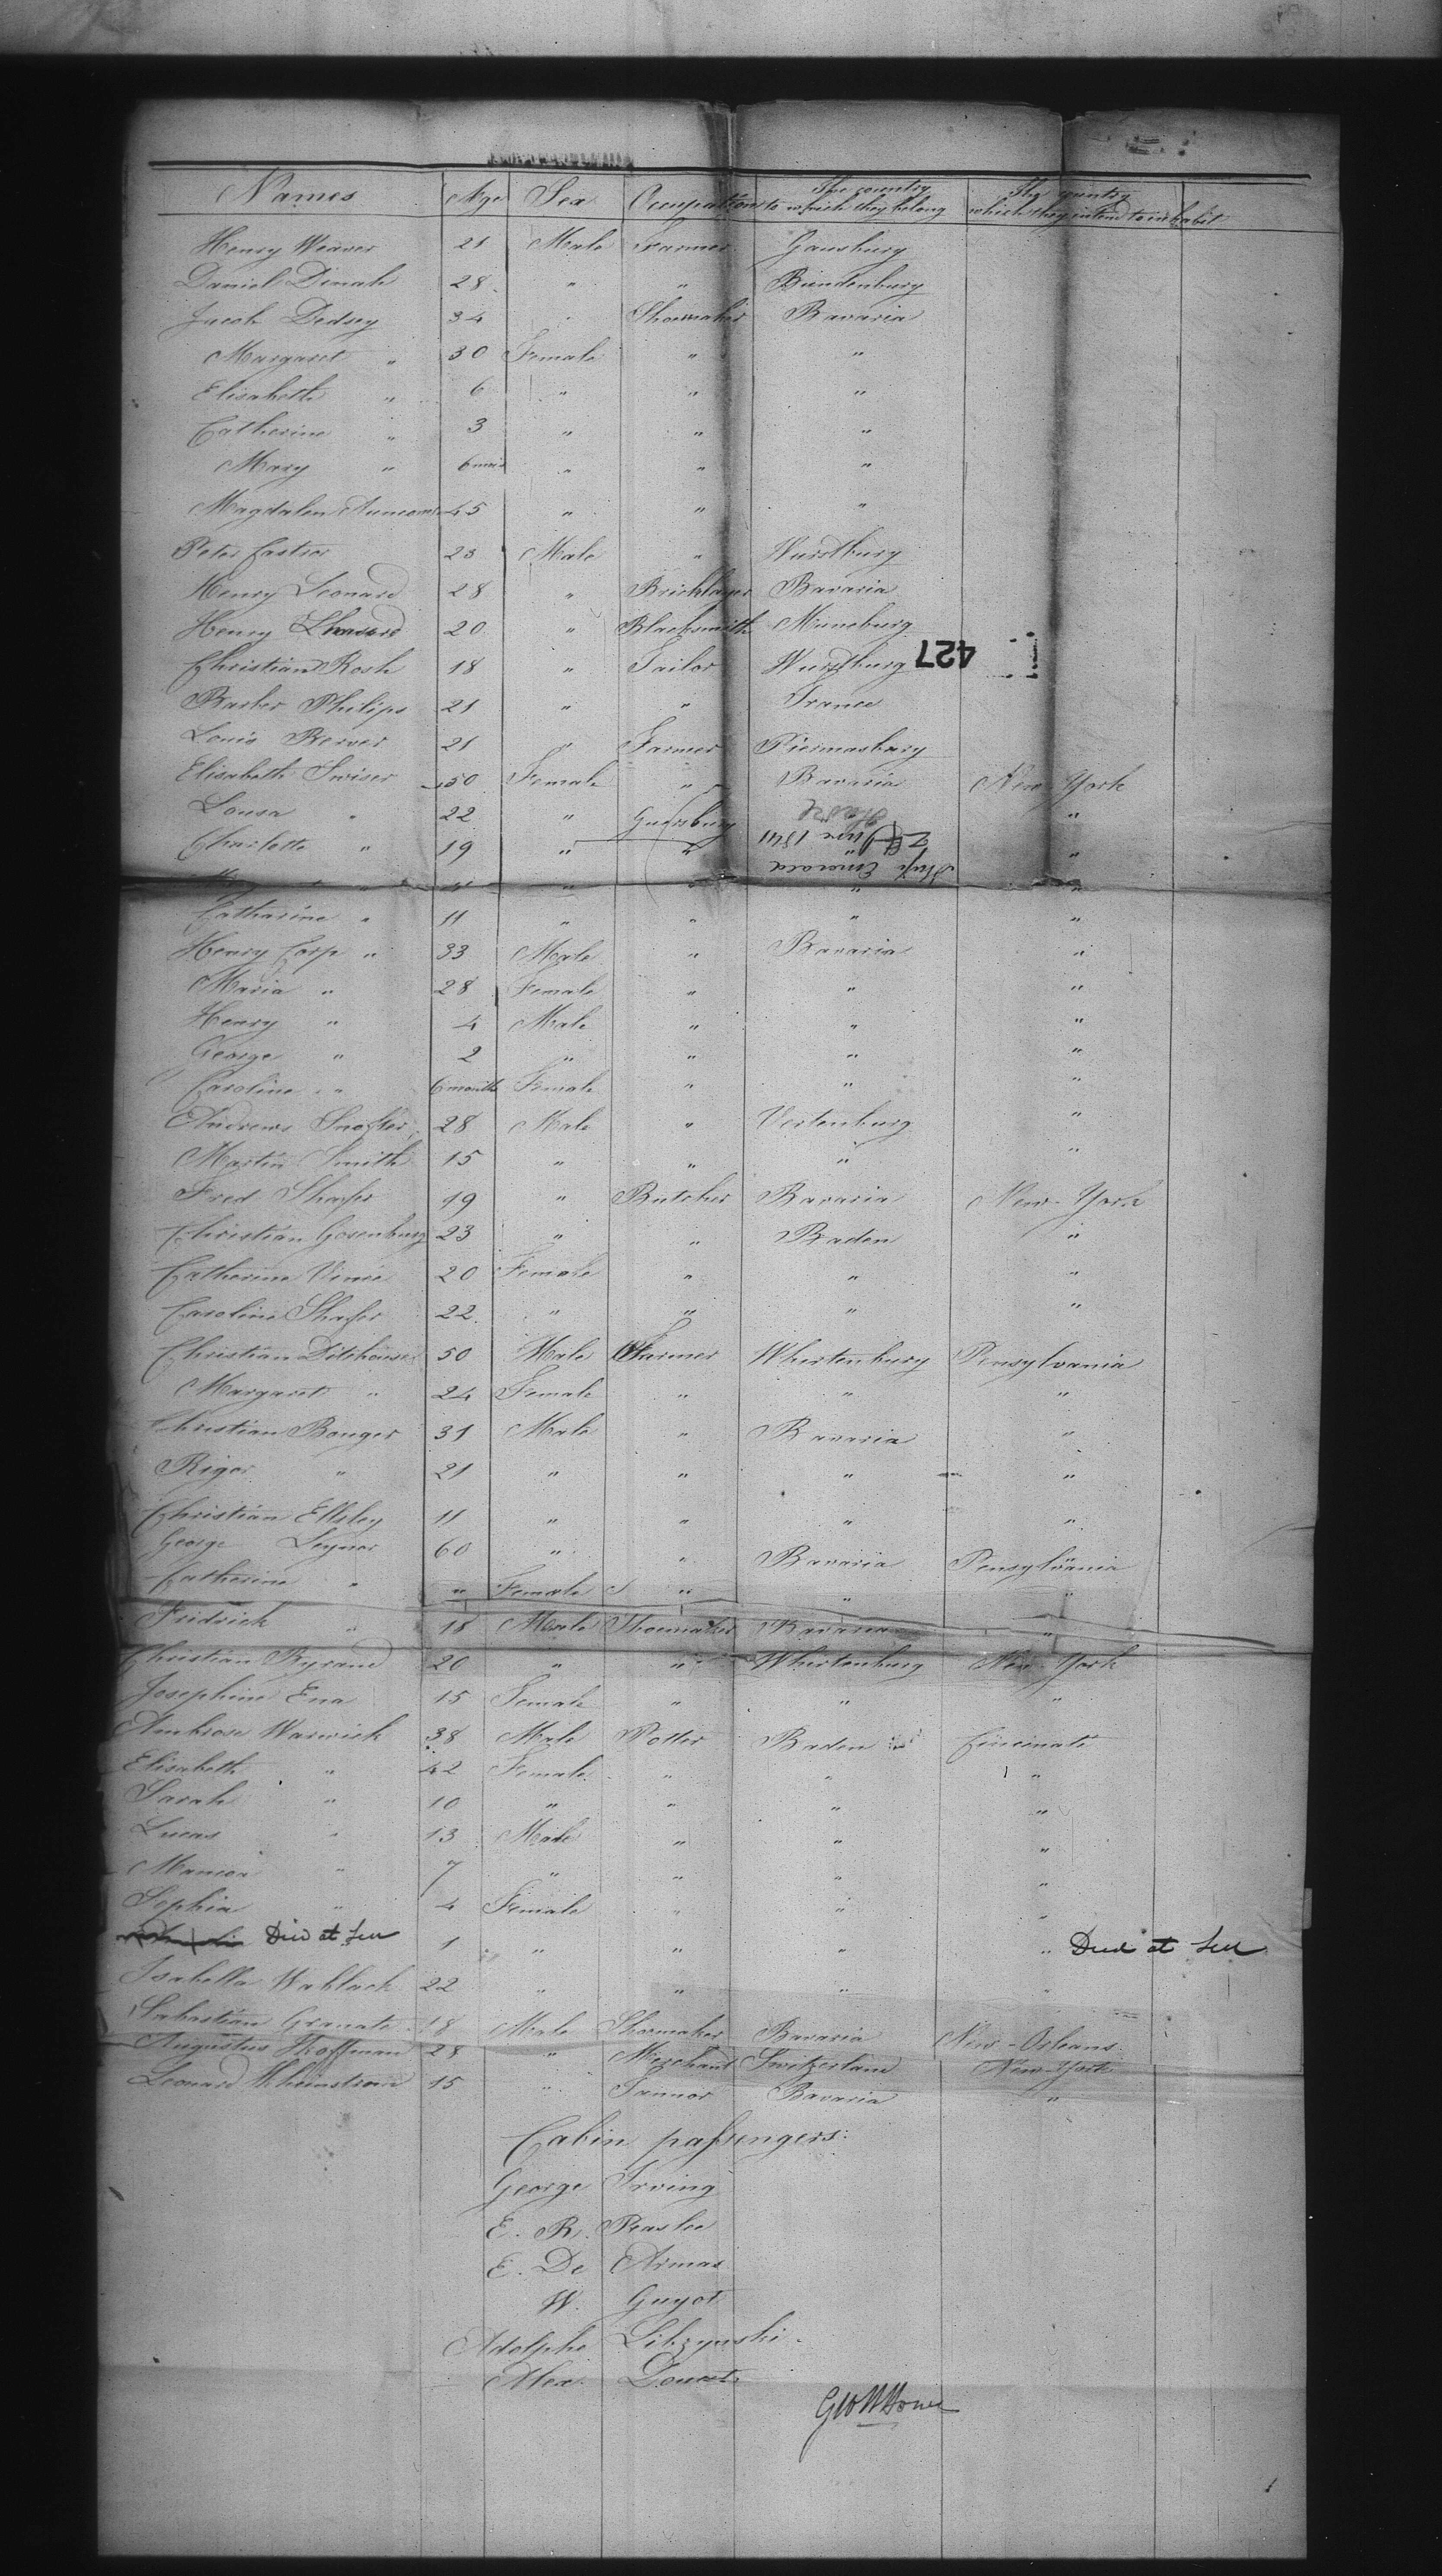 Names Age Sex Occupation The country to which they belong The country which they intend to inhabit
Henry Weaver 21 Male Farmer Gansburg
Daniel Dinah 28 " " Bundenburg
Jacob Dedsey 34 " Shoemaker Bavaria
Margaret " 30 Female " "
Elisabeth " 6 " " "
Catherine " 3 " " "
Mary " 6 " " "
Magdalen 45 " " "
Peter Castror 25 Male " Wurstburg
Henry Leonard 28 " Bricklayer Bavaria
Henry 20 " Blacksmith Muneburg
Christian Rosh 18 " Tailor Wurstburg
427
Barber Philips 21 " " France
Louis Berver 21 " Farmer Piermasburg
Elisabeth Swiser 50 Female " Bavaria New York
Lousa " 22 " Guersburg "
Charlotte " 19 " " "
Havre
24 June 1841
Ship Emerald
" " " " " "
Catharine " 11 " " " "
Henry Corp " 33 Male " Bavaria "
Maria " 28 Female " " "
Henry " 4 Male " " "
George " 2 " " " "
Caroline " 6 month Female " " "
Andrews 28 Male " Vertenburg "
Martin Smith 15 " " " "
Fred Shafer 19 " Butcher Bavaria New-York
Christian Gosenburg 23 " " Baden "
Catherine Vinie 20 Female " " "
Caroline Shafer 22 " " " "
Christian Ditchouse 50 Male Farmer Whertenburg Pensylvania
Margaret " 24 Female " " "
Christian Bouger 31 Male " Bavaria "
Riger " 21 " " " "
Christian Ellsley 11 " " " "
George Leynor 60 " " Bavaria Pensylvania
Catherine " " Female " " "
Fridrick " 18 Male Shoemaker Bavaria "
Christian Ryrand 20 " " Whertenburg New York
Josephine Ena 15 Female " " "
Ambrose Warwick 38 Male Potter Baden Cincinati
Elisabeth " 42 Female " " "
Sarah " 10 " " " "
Lucas " 13 Male " " "
Manson " 7 " " " "
Sophia " 4 Female " " "
Died at Sea 1 " " " " Died at Sea
Isabella Wablack 22 " " " "
Sabastian Granate 18 Male Shoemaker Bavaria New-Orleans
Augustus Hoffman 28 " Merchant Switzerland New-York
Leonard 15 " Tannor Bavaria "
Cabin passengers:
George Irving
E. R. Peaslee
E. De Armas
W. Guyot
Adolphe Libzynski
Alex. Doucet
Geo W Howe